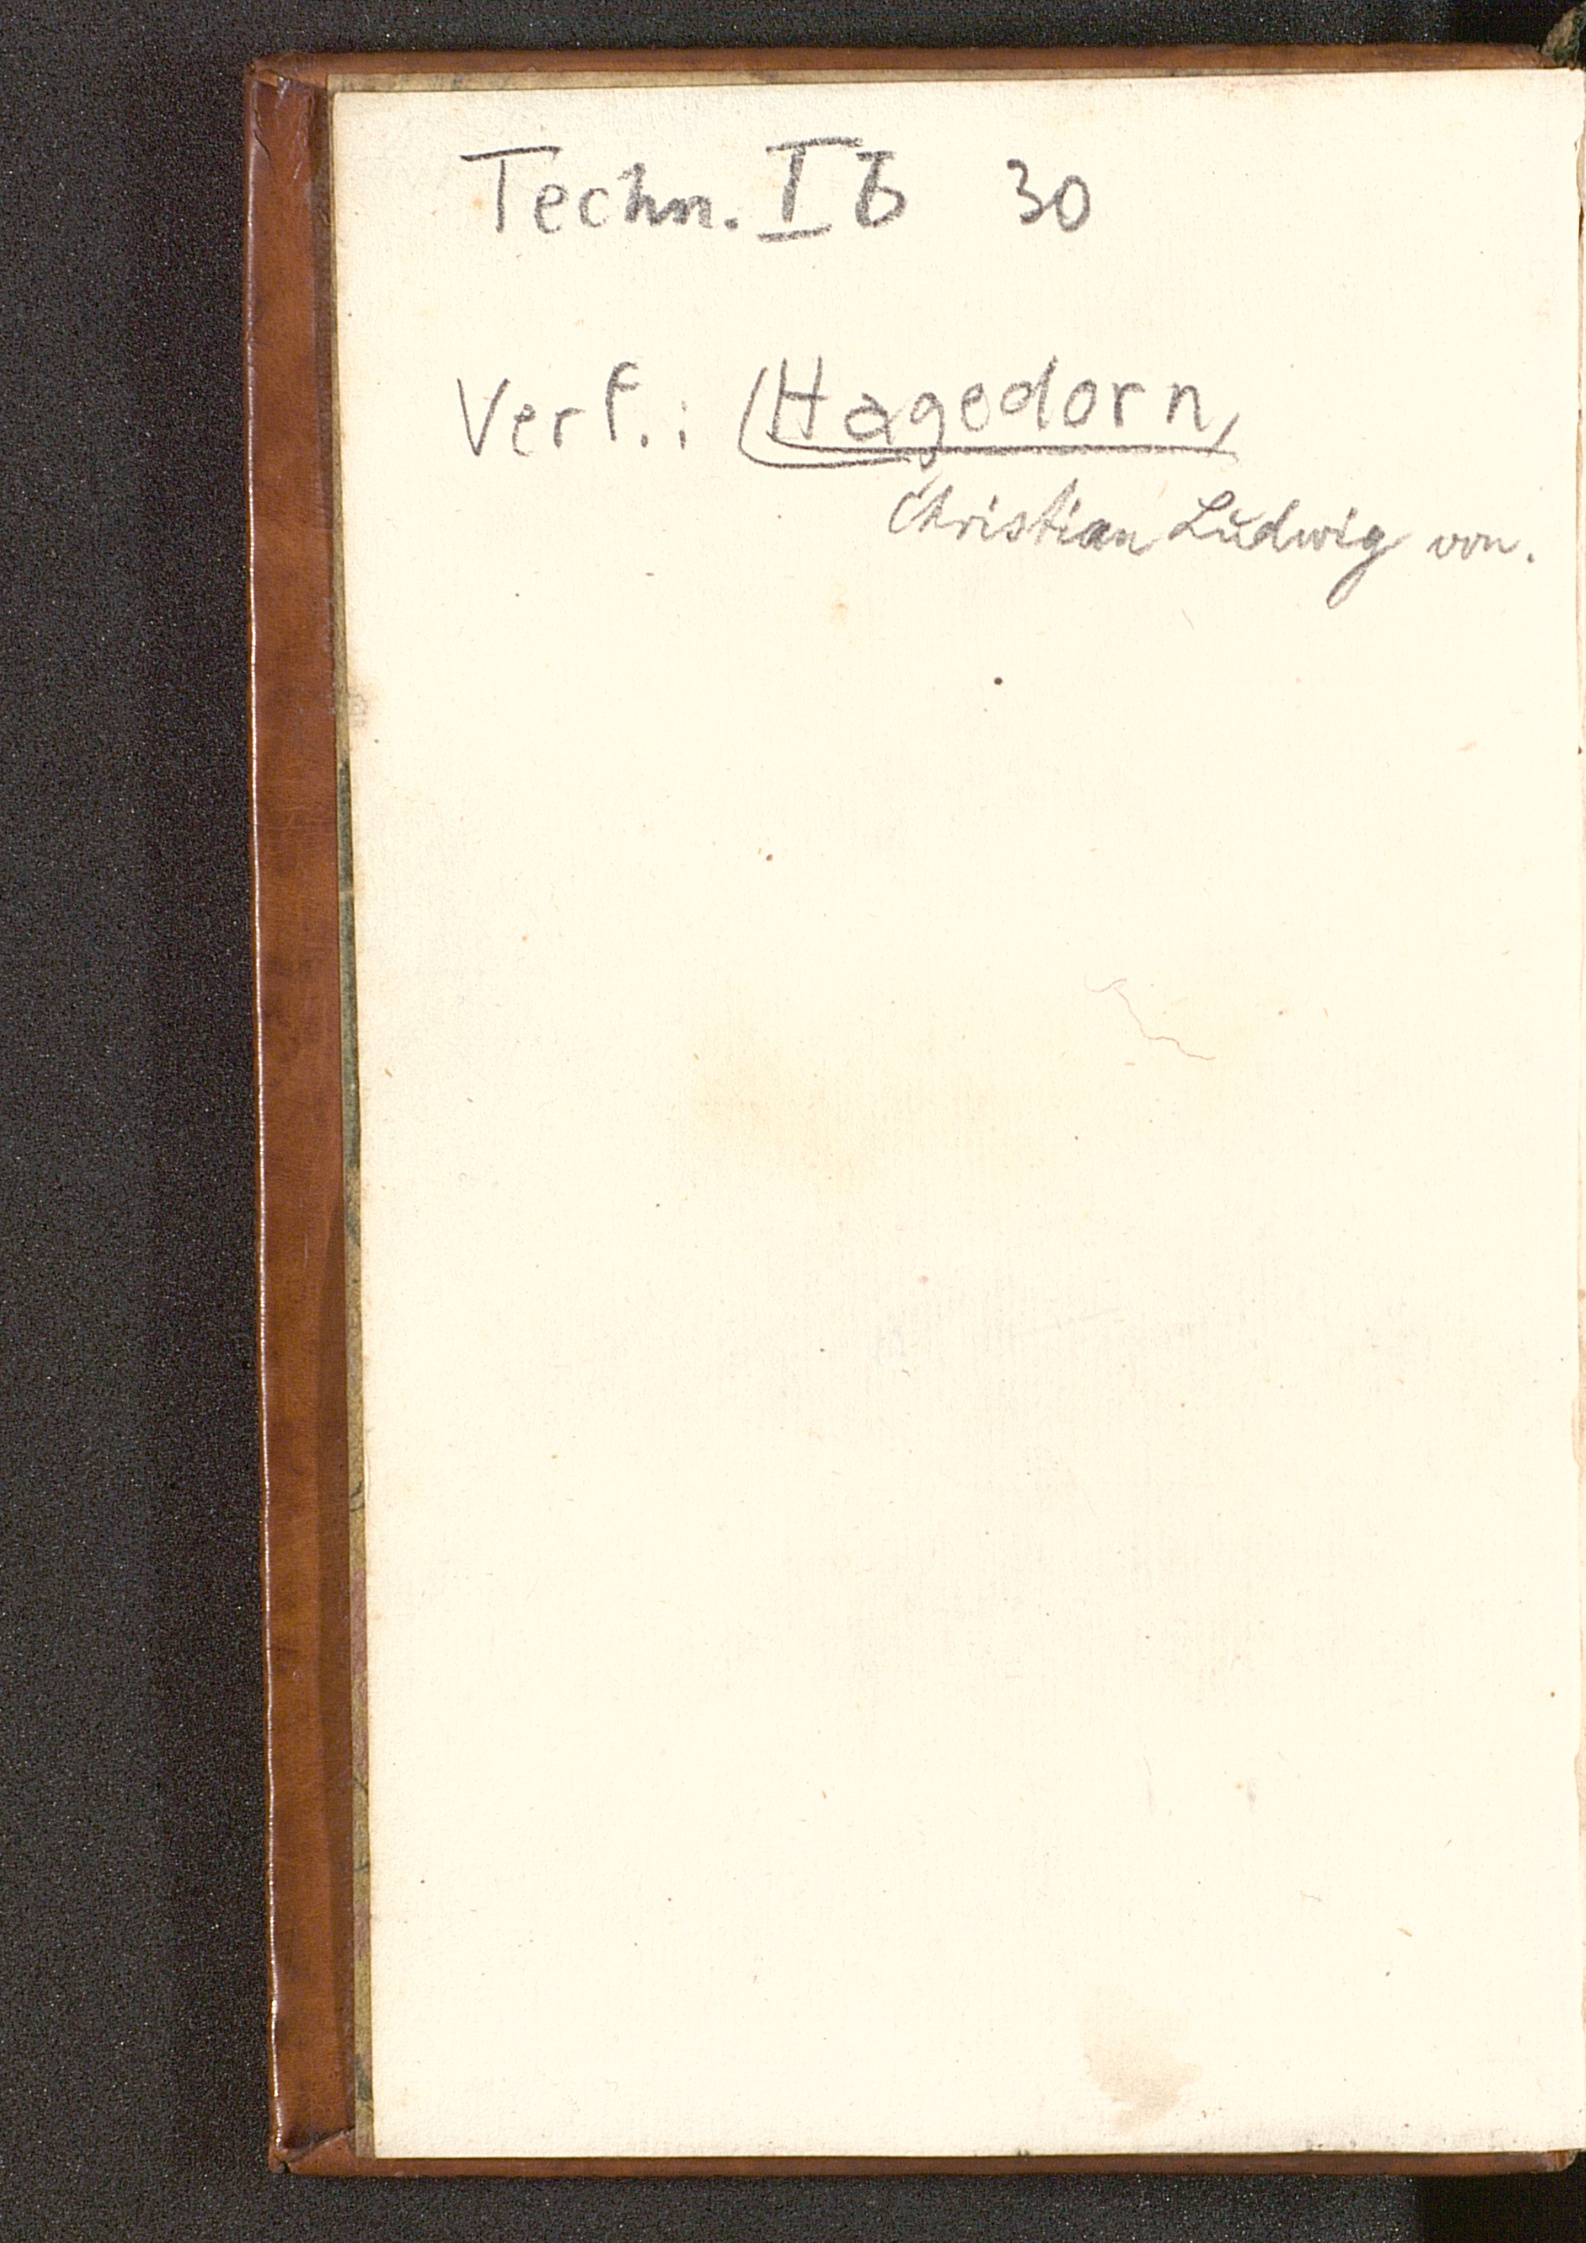 Techn. I b 30
Verf.: (Hagedorn,
Christian Ludwig von.